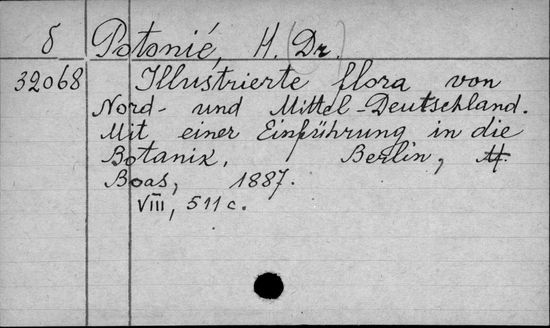 б Potonié, H. (Dr.)
32068 Illustrierte flora von
Nord- und Mittel-Deutschland.
Mit einer Einführung in die
Botanik, Berlin, M.
Boas, 1887.
VIII, 511 c.